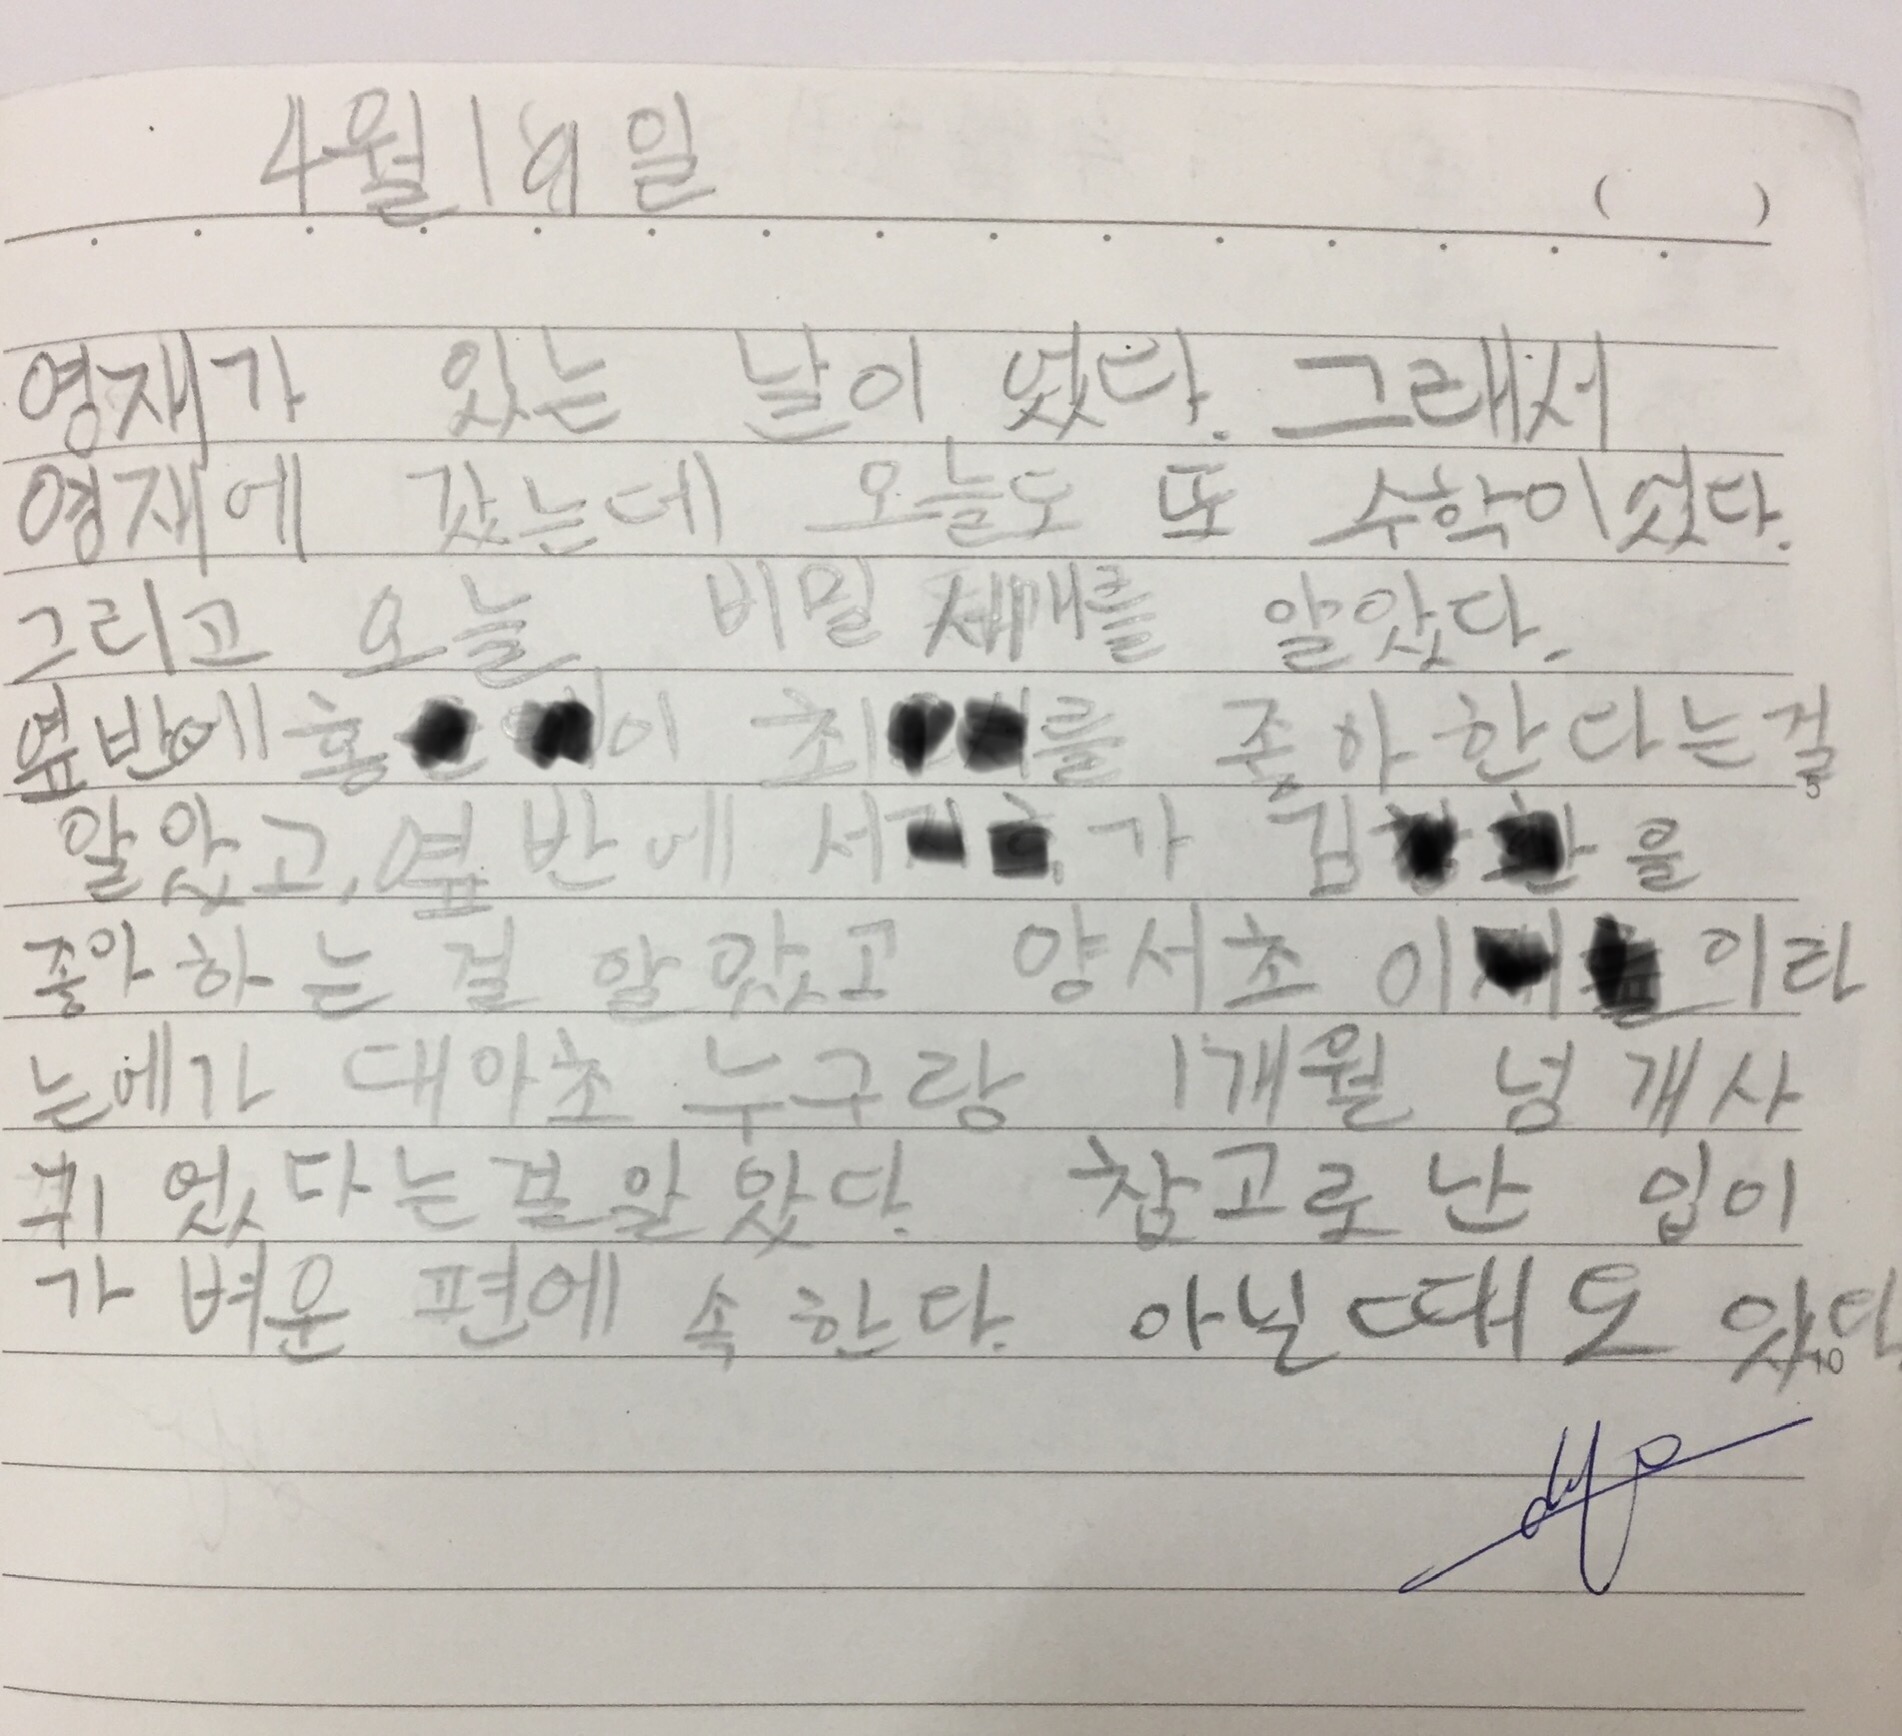 4월 19일
( )
영재가 있는 날이 었다. 그래서
영재에 갔는데 오늘도 또 수학이 었다.
그리고 오늘 비밀 세개를 알았다.
옆반에 홍 이 최 를 좋아한다는걸
알았고, 옆반에 서 가 김 을
좋아하는 걸 알았고 양서초 이 이라
는에가 대아초 누구랑 1개월 넘개사
귀었다는걸 알았다. 참고로 난 입이
가벼운 편에 속한다. 아닐때도 있다
5
10